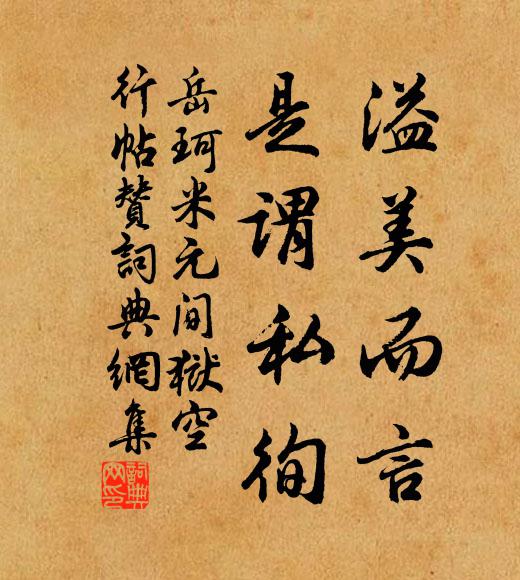 溢美而言
是谓私徇
岳珂米元间狱空
行帖赞词典网集
词典网印